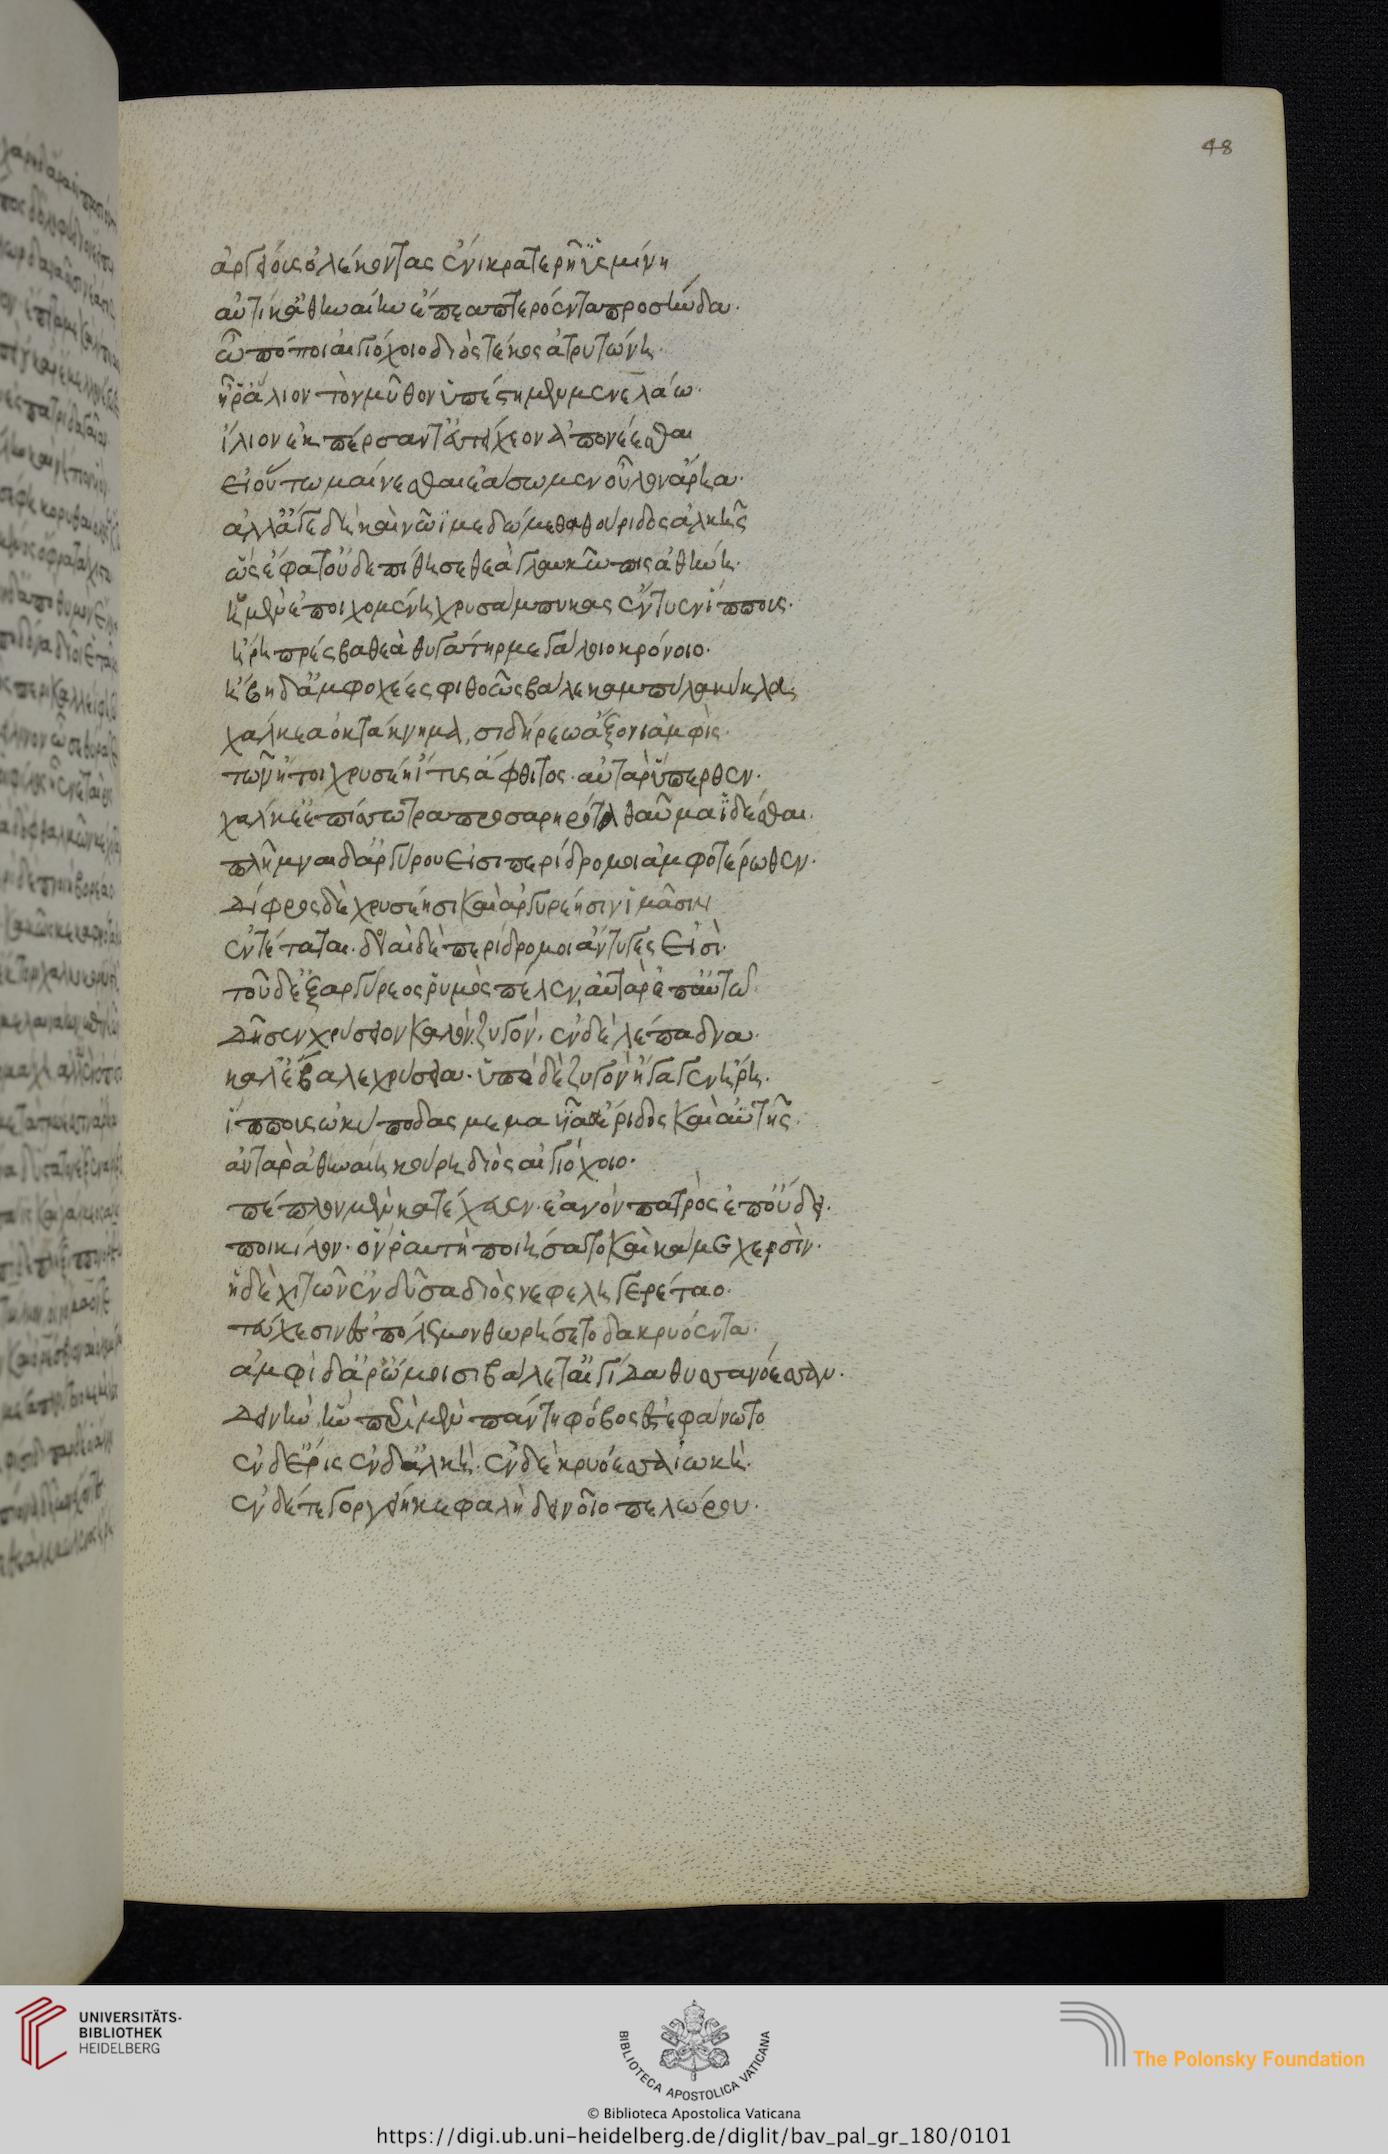 48
ἀργείους ὀλέκοντας ἐνὶ κρατερῆ ὑσμίνη
αὐτίκ' ἀθηναίην ἔπεα πτερόεντα προσηύδα·
ὢ πόποι αἰγιόχοιο διὸς τέκος ἀτρυτώνη·
ἦ ῥ' ἅλιον τὸν μῦθον ὑπέστημεν μενελάω·
ἴλιον ἐκπέρσαντ' εὐτείχεον ἀπονέεσθαι
εἰ οὕτω μαίνεσθαι ἐάσωμεν οὖλον ἄρηα·
ἀλλ' ἄγε δὴ καὶ νῶϊ μεδώμεθα θούριδος ἀλκῆς
ὣς ἔφατ' οὐδ' ἐπίθησε θεὰ γλαυκῶπις ἀθήνη·
ἡ μὲν ἐποιχομένη χρυσάμπυκας ἔντυεν ἵππους·
ἥρη πρέσβα θεὰ θυγάτηρ μεγάλοιο κρόνοιο·
ἥβη δ' ἀμφ' ὀχέεσφι θοῶς βάλε καμπύλα κύκλα,
χάλκεα ὀκτάκνημα, σιδηρέω ἄξονι ἀμφὶς·
τῶν ἤτοι χρυσέη ἴτυς ἄφθιτος· αὐτὰρ ὕπερθεν·
χάλκε' ἐπίσσωτρα προσαρηρότα θαῦμα ἰδέσθαι·
πλῆμναι δ' ἀργύρου εἰσὶ περίδρομοι ἀμφοτέρωθεν·
δίφρος δὲ χρυσέησι καὶ ἀργυρέησιν ἱμᾶσιν
ἐντέταται· δοιαὶ δὲ περίδρομοι ἄντυγες εἰσὶ·
τοῦ δ' ἐξ ἀργύρεος ῥυμὸς πέλεν, αὐτὰρ ἐπ' αὐτῶ
δῆσεν χρύσειον καλὸν ζυγόν· ἐν δὲ λέπαδνα·
κάλ' ἔβαλε χρύσεια· ὑπὸ δὲ ζυγὸν ἤγαγεν ἥρη·
ἵππους ὠκύποδας μεμαυῖα ἔριδος καὶ ἀϋτῆς·
αὐτὰρ ἀθηναίη κούρη διὸς αἰγιόχοιο·
πέπλον μὲν κατέχευεν· ἑανὸν πατρὸς ἐπ' οὔδει·
ποικίλον· ὅν ῥ' αὐτὴ ποιήσατο καὶ κάμε χερσὶν·
ἡ δὲ χιτῶν' ἐνδῦσα διὸς νεφεληγερέταο·
τεύχεσιν ἐς πόλεμον θωρήσσετο δακρυόεντα·
ἀμφὶ δ' ἄρ' ὤμοισι βάλετ' αἰγίδα θυσσανόεσσαν·
δεινὴν, ἣν περὶ μὲν πάντη φόβος ἐστεφάνωτο
ἐν δ' ἔρις ἐν δ' ἀλκὴ· ἐν δὲ κρυόεσσα ἰωκὴ·
ἐν δέ τε γοργείη κεφαλὴ δεινοῖο πελώρου·
UNIVERSITÄTS-
BIBLIOTHEK
HEIDELBERG
BIBLIOTECA APOSTOLICA VATICANA
The Polonsky Foundation
© Biblioteca Apostolica Vaticana
https://digi.ub.uni-heidelberg.de/diglit/bav_pal_gr_180/0101